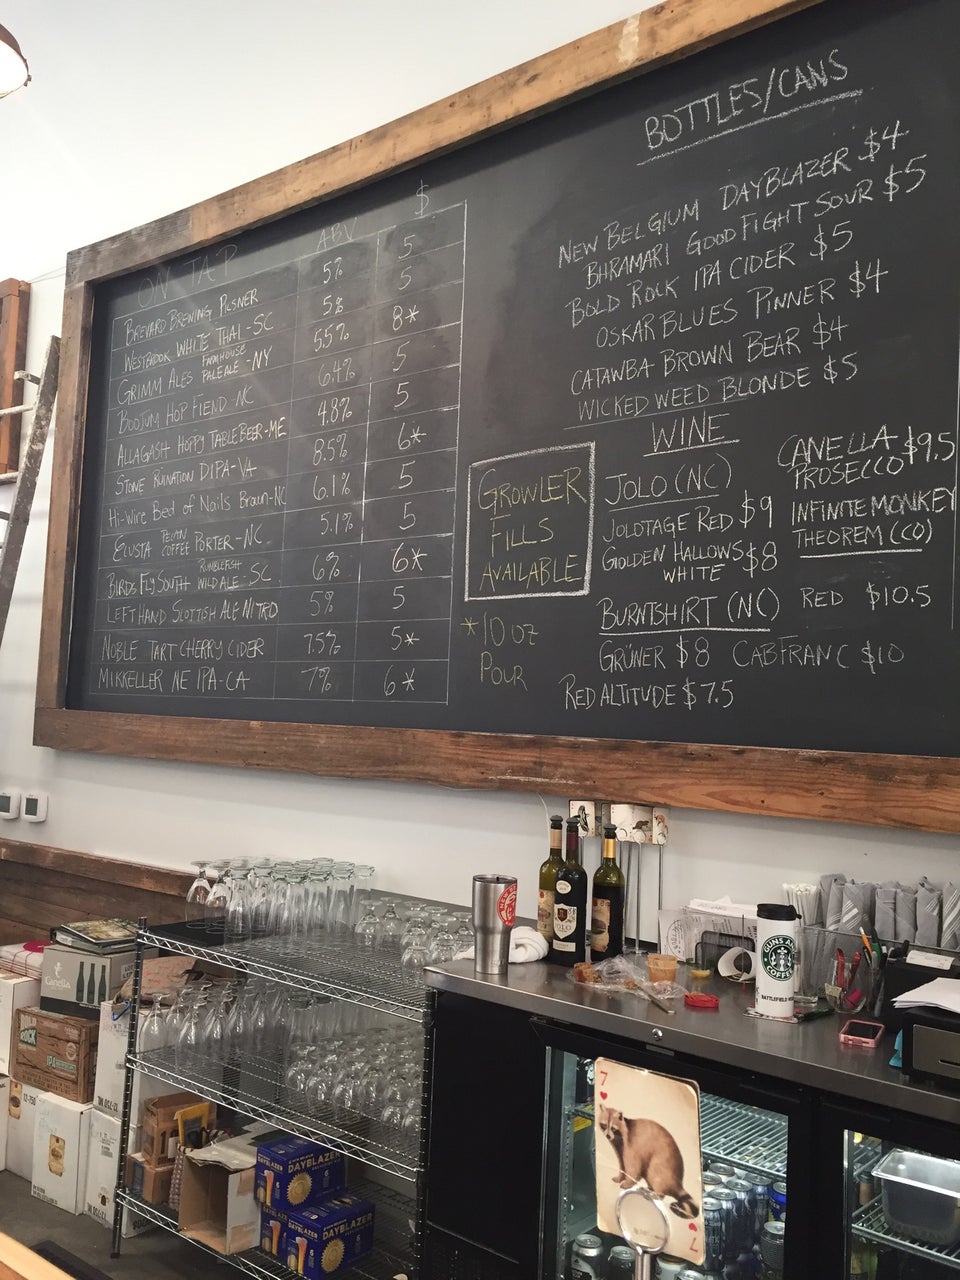 ON TAP ABV $
BREVARD BREWING PILSNER 5% 5
WESTBROOK WHITE THAI-SC 5% 5
GRIMM ALES FARMHOUSE PALE ALE-NY 5.5% 8*
BOOJUM HOP FIEND-NC 6.4% 5
ALLAGASH HOPPY TABLE BEER-ME 4.8% 5
STONE RUINATION DIPA-VA 8.5% 6*
Hi-Wire Bed of Nails Brown-NC 6.1% 5
ECUSTA PECAN COFFEE PORTER-NC 5.1% 5
BIRDS FLY SOUTH RUMBLEFISH WILD ALE-SC 6% 6*
LEFT HAND SCOTTISH ALE NITRO 5% 5
NOBLE TART CHERRY CIDER 7.5% 5*
MIKKELLER NE IPA-CA 7% 6*
GROWLER
FILLS
AVAILABLE
*10 oz
POUR
BOTTLES/CANS
NEW BELGIUM DAYBLAZER $4
BHRAMARI GOOD FIGHT SOUR $5
BOLD ROCK IPA CIDER $5
OSKAR BLUES PINNER $4
CATAWBA BROWN BEAR $4
WICKED WEED BLONDE $5
WINE
JOLO (NC)
JOLOTAGE RED $9
GOLDEN HALLOWS WHITE $8
CANELLA PROSECCO $9.5
INFINITE MONKEY
THEOREM (CO)
RED $10.5
BURNTSHIRT (NC)
GRÜNER $8 CABFRANC $10
RED ALTITUDE $7.5
GUNS AND
COFFEE
Canella
ROCK
IPA
DAYBLAZER
DAYBLAZER
7
7